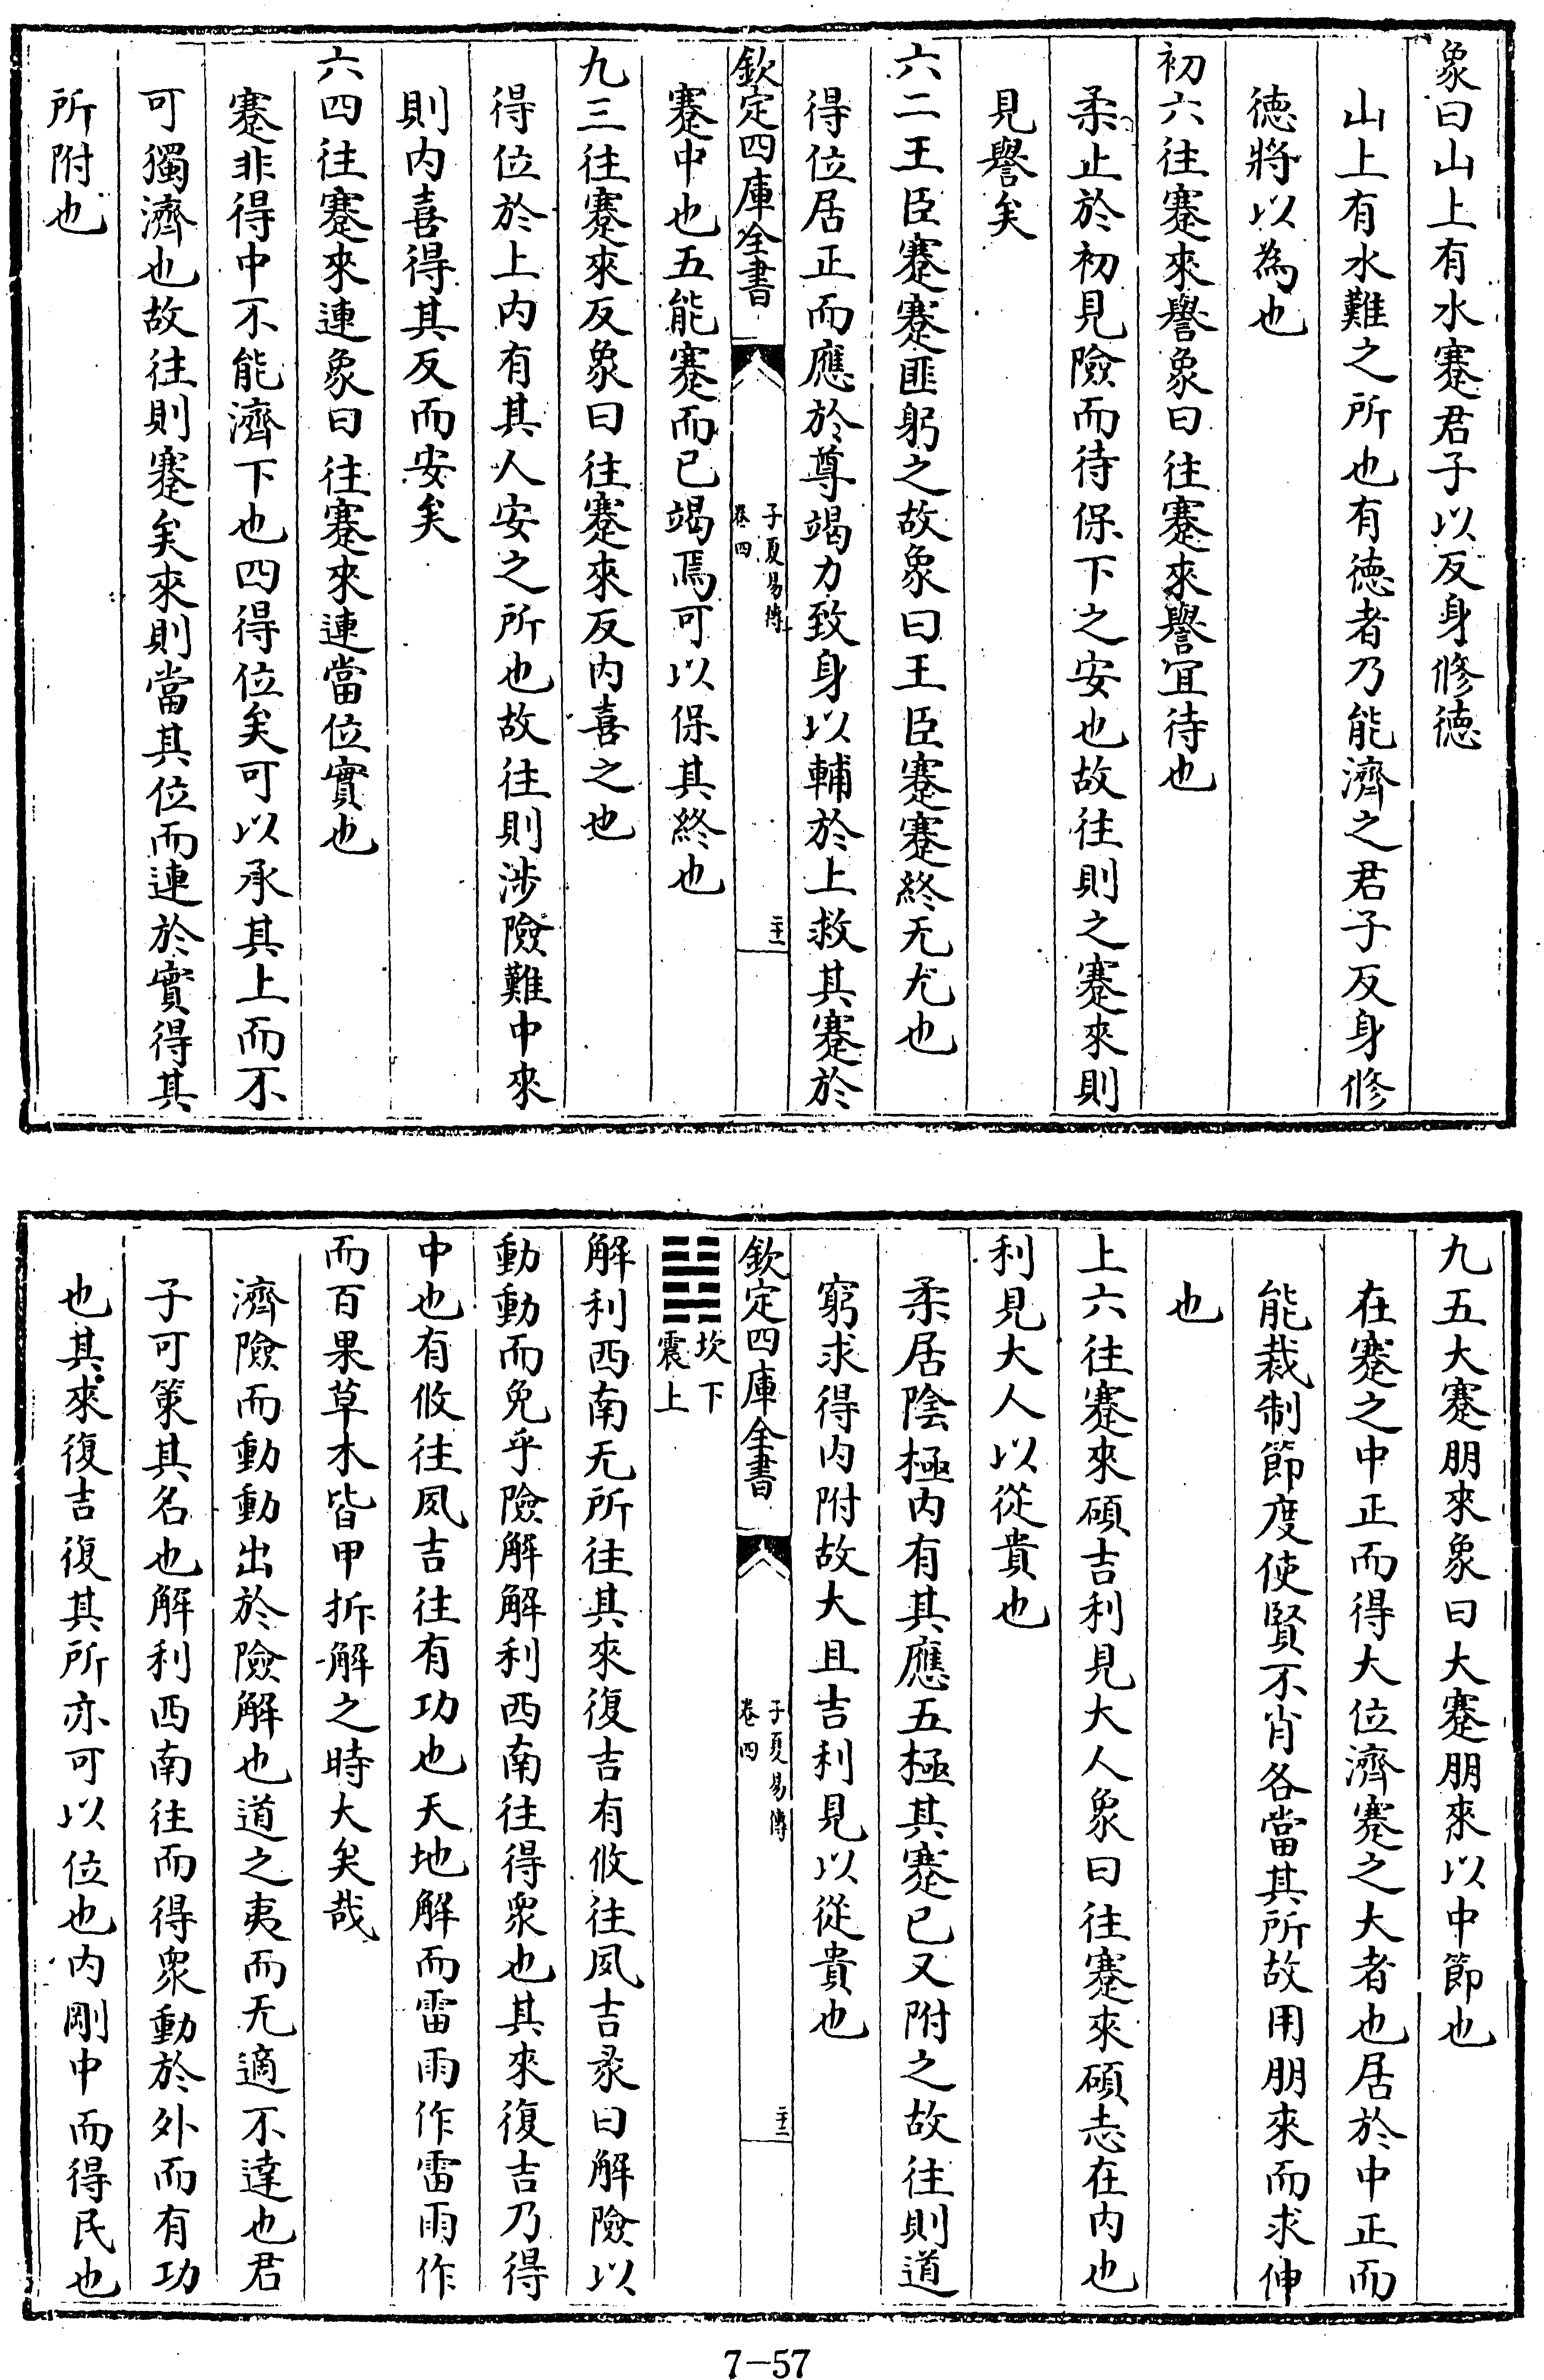 象曰山上有水蹇君子以反身修徳
山上有水難之所也有徳者乃能濟之君子反身修
徳將以為也
初六往蹇來譽象曰往蹇來譽宜待也
柔止於初見險而待保下之安也故往則之蹇來則
見譽矣
六二王臣蹇蹇匪躬之故象曰王臣蹇蹇終无尤也
得位居正而應於尊竭力致身以輔於上救其蹇於
欽定四庫全書
子夏易傳
卷四
二十一
蹇中也五能蹇而已竭焉可以保其終也
九三往蹇來反象曰往蹇來反内喜之也
得位於上内有其人安之所也故往則涉險難中來
則内喜得其反而安矣
六四往蹇來連象曰往蹇來連當位實也
蹇非得中不能濟下也四得位矣可以承其上而不
可獨濟也故往則蹇矣來則當其位而連於實得其
所附也
九五大蹇朋來象曰大蹇朋來以中節也
在蹇之中正而得大位濟蹇之大者也居於中正而
能裁制節度使賢不肖各當其所故用朋來而求伸
也
上六往蹇來碩吉利見大人象曰往蹇來碩志在内也
利見大人以從貴也
柔居陰極内有其應五極其蹇已又附之故往則道
窮求得内附故大且吉利見以從貴也
欽定四庫全書
子夏易傳
卷四
二十二
坎下
震上
解利西南无所往其來復吉有攸往夙吉彖曰解險以
動動而免乎險解解利西南往得衆也其來復吉乃得
中也有攸往夙吉往有功也天地解而雷雨作雷雨作
而百果草木皆甲拆解之時大矣哉
濟險而動動出於險解也道之夷而无適不達也君
子可策其名也解利西南往而得衆動於外而有功
也其來復吉復其所亦可以位也内剛中而得民也
7-57